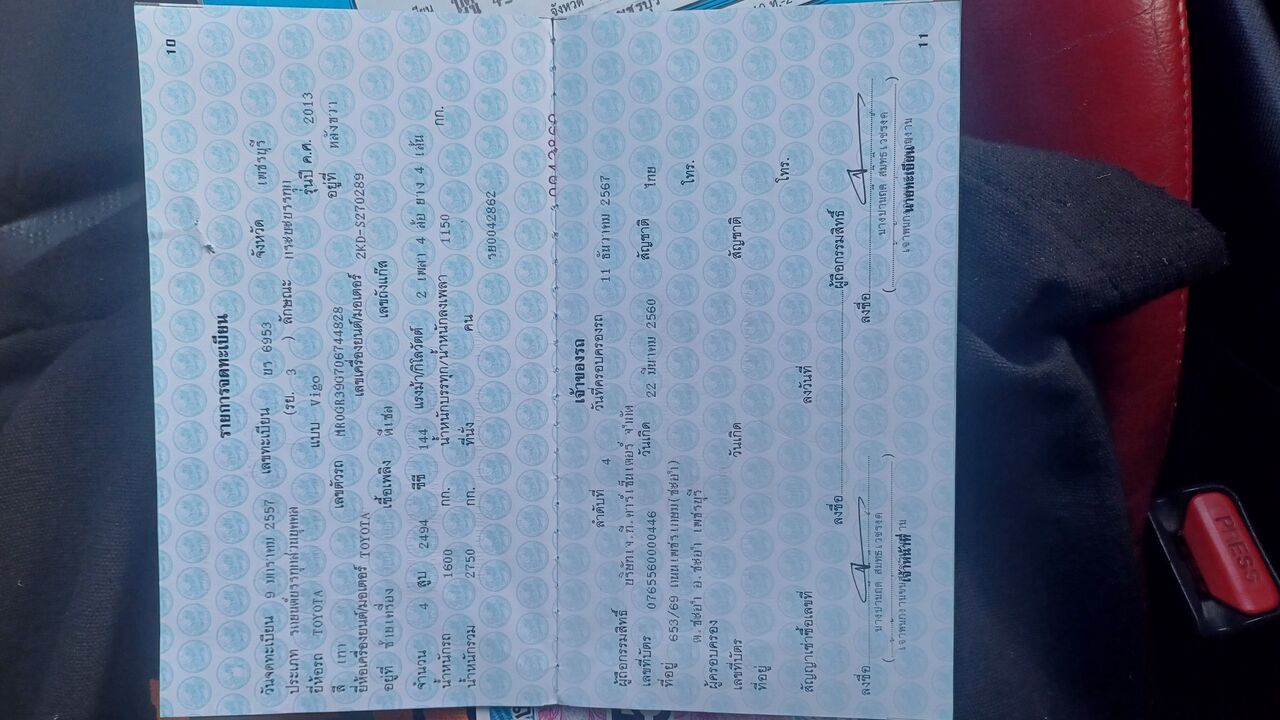 10
รายการจดทะเบียน
วันจดทะเบียน 9 มกราคม 2557 เลขทะเบียน บร 6953 จังหวัด เพชรบุรี
ประเภท รถยนต์บรรทุกส่วนบุคคล (รย. 3 ) ลักษณะ กระบะบรรทุก
ยี่ห้อรถ TOYOTA แบบ Vigo รุ่นปี ค.ศ. 2013
สี เทา เลขตัวรถ MR0GR39G706744828 อยู่ที่ หลังขวา
ยี่ห้อเครื่องยนต์/มอเตอร์ TOYOTA เลขเครื่องยนต์/มอเตอร์ 2KD-S270289
อยู่ที่ ซ้ายเครื่อง เชื้อเพลิง ดีเซล เลขถังแก๊ส
จำนวน 4 สูบ 2494 ซีซี 144 แรงม้า/กิโลวัตต์ 2 เพลา 4 ล้อ ยาง 4 เส้น
น้ำหนักรถ 1600 กก. น้ำหนักบรรทุก/น้ำหนักลงเพลา 1150 กก.
น้ำหนักรวม 2750 กก. ที่นั่ง คน
รย0042862
เจ้าของรถ
ลำดับที่ 4 วันที่ครอบครองรถ 11 ธันวาคม 2567
ผู้ถือกรรมสิทธิ์ บริษัทเจ.ที.คาร์เซ็นเตอร์ จำกัด
เลขที่บัตร 0765560000446 วันเกิด 22 มีนาคม 2560 สัญชาติ ไทย
ที่อยู่ 653/69 ถนนเพชรเกษม(ชะอำ) โทร.
ต.ชะอำ อ.ชะอำ เพชรบุรี
ผู้ครอบครอง
เลขที่บัตร วันเกิด สัญชาติ
ที่อยู่ โทร.
สัญญาเช่าซื้อเลขที่ ลงวันที่
ลงชื่อ ผู้ถือกรรมสิทธิ์
ลงชื่อ ลงชื่อ
( ) ( )
เจ้าหน้าที่ นายทะเบียน
11